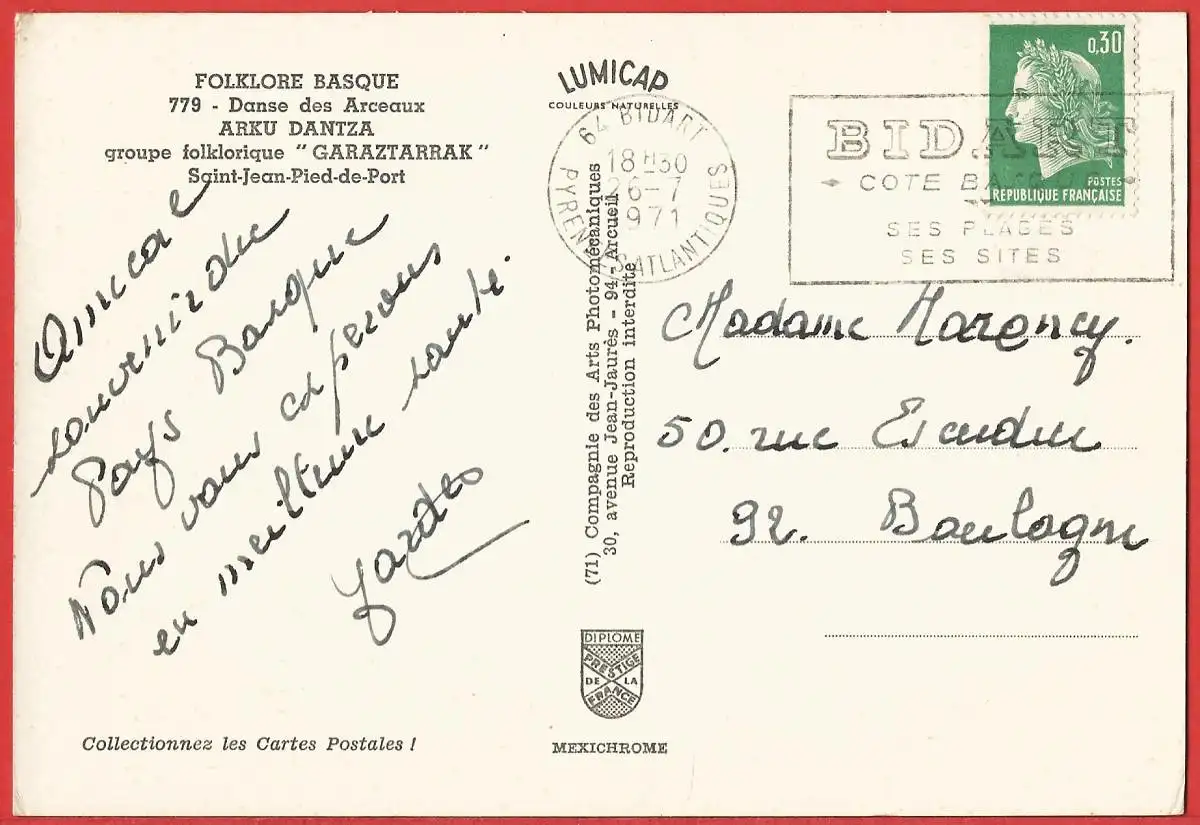 FOLKLORE BASQUE
779 - Danse des Arceaux
ARKU DANTZA
groupe folklorique "GARAZTARRAK"
Saint-Jean-Pied-de-Port
Amical
souvenir du
Pays Basque
Nous vous espérons
en meilleure santé.
Collectionnez les Cartes Postales !
LUMICAP
COULEURS NATURELLES
64 BIDART
18H30
26-7
1971
PYRENEES ATLANTIQUES
(71) Compagnie des Arts Photomécaniques
30, avenue Jean-Jaurès - 94-Arcueil
Reproduction interdite
DIPLOME
PRESTIGE
DE LA
FRANCE
MEXICHROME
0,30
POSTES
REPUBLIQUE FRANÇAISE
BIDART
COTE BASQUE
SES PLAGES
SES SITES
Madame
50. rue Escudier
92. Boulogne